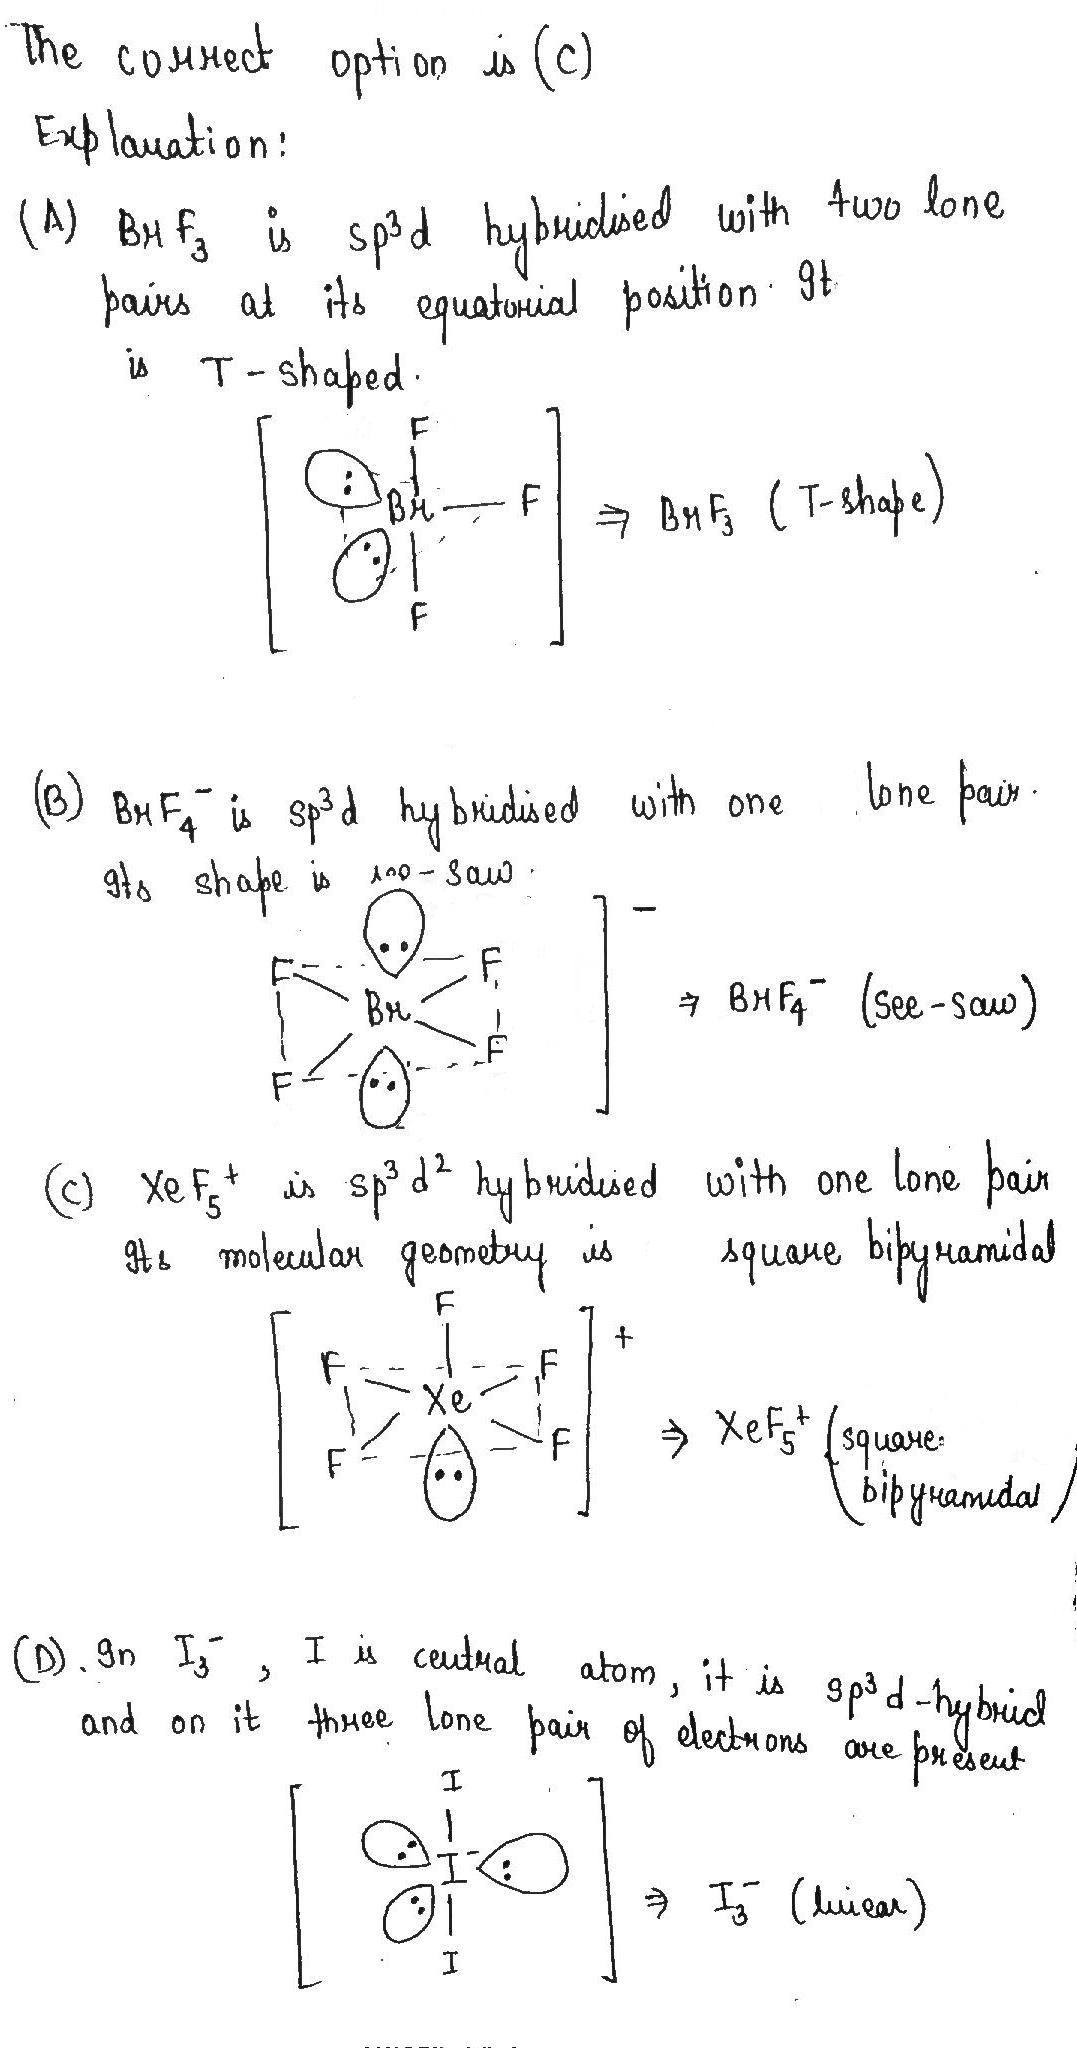 The correct option is (C)
Explanation:
(A) BrF₃ is sp³d hybridised with two lone
pairs at its equatorial position. It
is T-shaped.
F
Br F
F
⇒ BrF₃ (T-shape)
(B) BrF₄⁻ is sp³d hybridised with one lone pair.
Its shape is see-saw.
F F
Br
F F
−
⇒ BrF₄⁻ (See-saw)
(C) XeF₅⁺ is sp³d² hybridised with one lone pair
Its molecular geometry is square bipyramidal
F
F F
Xe
F F
+
⇒ XeF₅⁺ (square
bipyramidal)
(D). In I₃⁻, I is central atom, it is sp³d-hybrid
and on it three lone pair of electrons are present
I
I
I
⇒ I₃⁻ (linear)